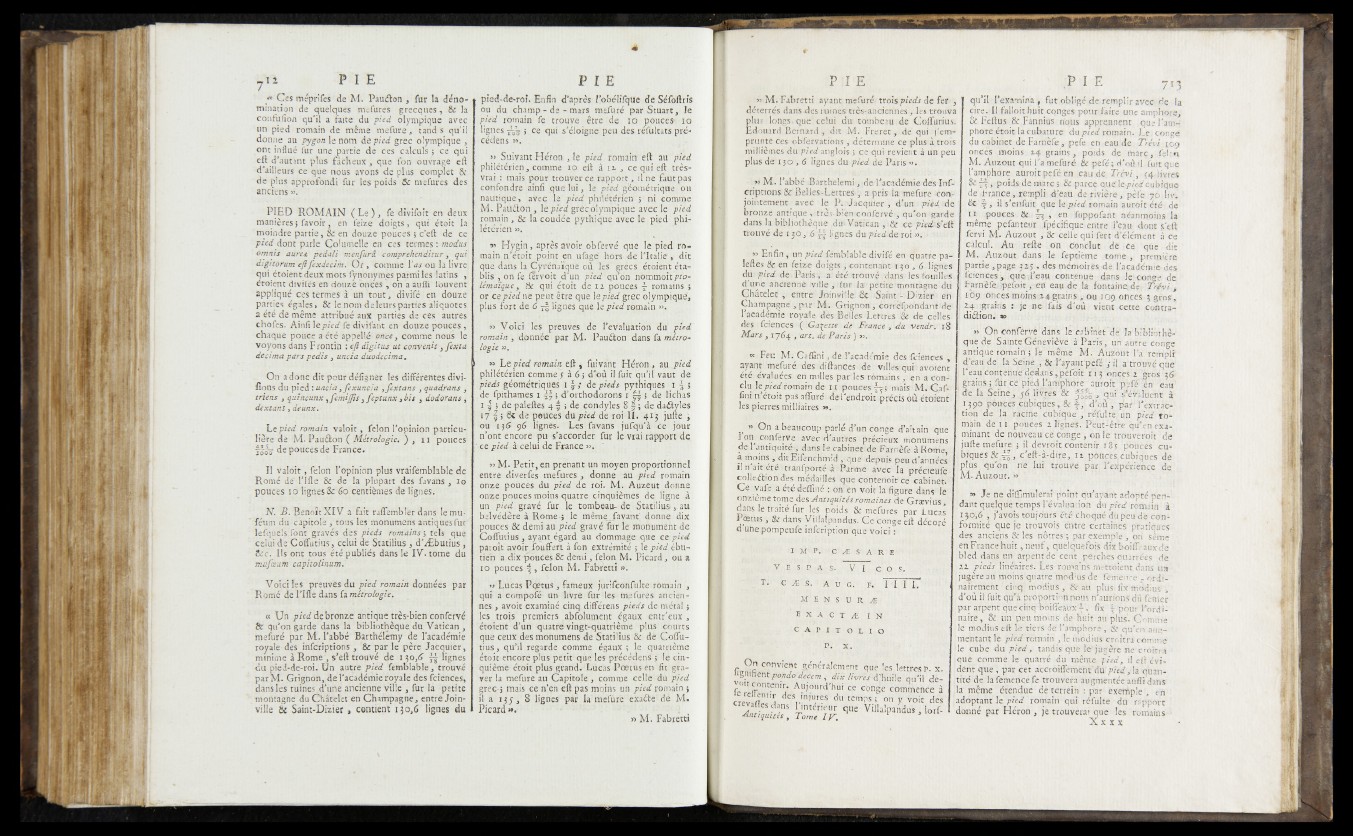 712 PIE PIE
« Ces méprises de M. Paucton, sur la déno-
mination de quelques mesures grecques, & la
confusion qu'il a faite du pied olympique avec
un pied romain de même mesure, tandis qu'il
donne au pygon le nom de pied grec olympique,
ont influé sur une partie de ces calculs; ce qui
est d'autant plus fâcheux, que son ouvrage est
d'ailleurs ce que nous avons de plus complet &
de plus approfondi sur les poids & mesures des
anciens ».
PIED ROMAIN (Le), se divisoit en deux
manières; savoir, en seize doigts, qui étoit la
moindre partie, & en douze pouces; c'est de ce
pied dont parle Columelle en ces termes: modus
omnis aureæ pedali mensurâ comprehenditur, qui
digitorum est sexdecim. Or, comme l'as ou la livre
qui étoient deux mots synonymes parmi les latins,
étoient divisés en douze onces, on a aussi souvent
appliqué ces termes à un tout, divisé en douze
parties égales, & le nom de leurs parties aliquotes
a été de même attribué aux parties de ces autres
choses. Ainsi le pied se divisant en douze pouces,
chaque pouce a été appellé once, comme nous le
voyons dans Frontin: est digitus ut convenit, sexta
decima pars pedis, uncia duodecima.
On a donc dit pour désigner les différentes divi-
sions du pied: uncia, sexuncia, sextans, quadrans,
triens, quincunx, semissis, septunx, bis, dodrans,
dextans, deunx.
Le pied romain valoit, selon l'opinion particu-
lière de M. Paucton (Métrologie.), 11 pouces
de pouces de France.
Il valoit, selon l'opinion plus vraisemblable de
Romé de l'Isle & de la plupart des savans, 10
pouces 10 lignes & 60 centièmes de lignes.
N. B. Benoît XIV a fait rassembler dans le mu-
séum du capitole, tous les monumens antiques sur
lesquels sont gravés des pieds romains; tels que
celui de Cossutius, celui de Statilius, d'Æbutius,
&c. Ils ont tous été publiés dans le IV. tome du
musœum capitolinum.
Voici les preuves du pied romain données par
Romé de l'Isle dans sa métrologie.
« Un pied de bronze antique très-bien conservé
& qu'on garde dans la bibliothèque du Vatican,
mesuré par M. l'abbé Barthélemy de l'académie
royale des inscriptions, & par le père Jacquier,
minime à Rome, s'est trouvé de 130,6 lignes
du pied-de-roi. Un autre pied semblable, trouvé
par M. Grignon, de l'académie royale des sciences,
dans les ruines d'une ancienne ville, sur la petite
montagne du Châtelet en Champagne, entre Join-
ville & Saint-Dizier, contient 130,6 lignes du
pied-de-roi. Enfin d'après l'obélisque de Sésostris
ou du champ-de-mars mesuré par Stuart, le
pied romain se trouve être de 10 pouces 10
lignes; ce qui s'éloigne peu des résultats pré-
cédens ».
» Suivant Héron, le pied romain est au pied
philétérien, comme 10 est à 12, ce qui est très-
vrai: mais pour trouver ce rapport, il ne faut pas
confondre ainsi que lui, le pied géométrique ou
nautique, avec le pied philétérien; ni comme
M. Paucton, le pied grec olympique avec le pied
romain, & la coudée pythique avec le pied phi-
létérien ».
» Hygin, après avoir observé que le pied ro-
main n'étoit point en usage hors de l'Italie, dit
que dans la Cyrénaïque où les grecs étoient éta-
blis, on se servoit d'un pied qu'on nommoit pto-
lémaïque, & qui étoit de 12 pouces ½ romains;
or ce pied ne peut être que le pied grec olympique,
plus fort de 6 lignes que le pied romain ».
» Voici les preuves de l'evaluation du pied
romain, donnée par M. Paucton dans sa métro-
logie ».
» Le pied romain est, suivant Héron, au pied
philétérien comme 5 à 6; d'où il suit qu'il vaut de
pieds géométriques 1; de pieds pythiques 1;
de spithames 1; d'orthodorons 1; de lichas
1; de palestes 4; de condyles 8; de dactyles
17; & de pouces du pied de roi 11. 413 juste,
ou 136 96 lignes. Les savans jusqu'à ce jour
n'ont encore pu s'accorder sur le vrai rapport de
ce pied à celui de France ».
» M. Petit, en prenant un moyen proportionnel
entre diverses mesures, donne au pied romain
onze pouces du pied de roi. M. Auzout donne
onze pouces moins quatre cinquièmes de ligne à
un pied gravé sur le tombeau de Statilius, au
belvédère à Rome; le même savant donne dix
pouces & demi au pied gravé sur le monument de
Cossutius, ayant égard au dommage que ce pied
paroît avoir souffert à son extrémité; le pied ébu-
tien a dix pouces & demi, selon M. Picard, ou a
10 pouces, selon M. Fabretti ».
» Lucas Pœtus, fameux jurisconsulte romain,
qui a composé un livre sur les mesures ancien-
nes, avoir examiné cinq différens pieds de métal;
les trois premiers absolument égaux entr'eux,
étoient d'un quatre vingt-quatrième plus courts
que ceux des monumens de Statilius & de Cossu-
tius, qu'il regarde comme égaux; le quatrième
étoit encore plus petit que les précédens; le cin-
quième étoit plus grand. Lucas Pœtus en fit gra-
ver la mesure au Capitole, comme celle du pied
grec; mais ce n'en est pas moins un pied romain;
il a 135, 8 lignes par la mesure exacte de M.
Picard ».
» M. Fabretti
PIE PIE 713
» M. Fabretti ayant mesuré trois pieds de fer,
déterrés dans des ruines très-anciennes, les trouva
plus longs que celui du tombeau de Cossutius.
Edouard Bernard, dit M. Freret, de qui j'em-
prunte ces observations, détermine ce plus à trois
millièmes du pied anglois; ce qui revient à un peu
plus de 130, 6 lignes du pied de Paris ».
» M. l'abbé Barthelemi, de l'académie des Ins-
criptions & Belles-Lettres, a pris la mesure con-
jointement avec le P. Jacquier, d'un pied de
bronze antique, très bien conservé, qu'on garde
dans la bibliothèque du Vatican, & ce pied s'est
trouvé de 130, 6 lignes du pied de roi ».
» Enfin, un pied semblable divisé en quatre pa-
lestes & en seize doigts, contenant 130, 6 lignes
du pied de Paris, a été trouvé dans les fouilles
d'une ancienne ville, sur la petite montagne du
Châtelet, entre Joinville & Saint-Dizier en
Champagne, par M. Grignon, correspondant de
l'académie royale des Belles Lettres & de celles
des sciences (Gazette de France, du vendr. 18
Mars, 1764, art. de Paris) ».
« Feu M. Cassini, de l'académie des sciences,
ayant mesuré des distances de villes qui avoient
été évaluées en milles par les romains, en a con-
clu le pied romain de 11 pouces; mais M. Cas-
sini n'étoit pas assuré de l'endroit précis où étoient
les pierres milliaires ».
» On a beaucoup parlé d'un conge d'airain que
l'on conserve avec d'autres précieux monumens
de l'antiquité, dans le cabinet de Farnèse à Rome,
à moins, dit Eisenchmid, que depuis peu d'années
il n'ait été transporté à Parme avec la précieuse
collection des médailles que contenoit ce cabinet.
Ce vase a été dessiné: on en voit la figure dans le
onzième tome des Antiquités romaines de Grævius,
dans le traité sur les poids & mesures par Lucas
Pœtus, & dans Villalpandus. Ce conge est décoré
d'une pompeuse inscription que voici:
IMP. CÆSARE
VESPAS. VI COS.
T. CÆS. AUG. F. IIII
MENSURÆ
EXACTÆ IN
CAPITOLIO
P. X.
On convient généralement que les lettres P. X.
signifient pondo decem, dix livres d'huile qu'il de-
voit contenir. Aujourd'hui ce conge commence à
se ressentir des injures du temps; on y voit des
crevasses dans l'intérieur que Villalpandus, lors-
Antiquités, Tome IV.
qu'il l'examina, fut obligé de remplir avec de la
cire. Il falloit huit conges pour faire une amphore;
& Festus & Fannius nous apprennent que l'am-
phore étoit la cubature du pied romain. Le conge
du cabinet de Farnèse, pese en eau de Trévi 109
onces moins 24 grains, poids de marc, selon
M. Auzout qui l'a mesuré & pesé; d'où il suit que
l'amphore auroit pesé en eau de Trévi, 54 livres
&, poids de marc; & parce que le pied cubique
de France, rempli d'eau de rivière, pèse 70 liv.
&, il s'ensuit que le pied romain auroit été de
11 pouces &, en supposant néanmoins la
même pesanteur spécifique entre l'eau dont s'est
servi M. Auzout, & celle qui sert d'élément à ce
calcul. Au reste on conclut de ce que dit
M. Auzout dans le septième tome, première
partie, page 325, des mémoires de l'académie des
sciences, que l'eau contenue dans le conge de
Farnèse pesoit, en eau de la fontaine de Trévi,
109 onces moins 24 grains, ou 109 onces 3 gros,
24 grains: je ne sais d'où vient cette contra-
diction. »
» On conserve dans le cabinet de la bibliothè-
que de Sainte Géneviève à Paris, un autre conge
antique romain; le même M. Auzout l'a rempli
d'eau de la Seine, & l'ayant pesé; il a trouvé que
l'eau contenue dedans, pesoit 113 onces 2 gros 36
grains; sur ce pied l'amphore auroit pesé en eau
de la Seine, 56 livres &, qui s'évaluent à
1390 pouces cubiques, &, d'où, par l'extrac-
tion de la racine cubique, résulte un pied ro-
main de 11 pouces 2 lignes. Peut-être qu'en exa-
minant de nouveau ce conge, on le trouveroit de
juste mesure; il devroit contenir 181 pouces cu-
biques &, c'est-à-dire, 12 pouces cubiques de
plus qu'on ne lui trouve par l'expérience de
M. Auzout. »
» Je ne dissimulerai point qu'ayant adopté pen-
dant quelque temps l'évaluation du pied romain à
130,6, j'avois toujours été choqué du peu de con-
formité que je trouvois entre certaines pratiques
des anciens & les nôtres; par exemple, on sème
en France huit, neuf, quelquefois dix boisseaux de
bled dans un arpent de cent perches quarrées de
22 pieds linéaires. Les romains mettoient dans un
jugère au moins quatre modius de semence, ordi-
nairement cinq modius, & au plus six modius,
d'où il suit qu'à proportion nous n'aurions dû semer
par arpent que cinq boisseaux, six pour l'ordi-
naire, & un peu moins de huit au plus. Comme
le modius est le tiers de l'amphore, & qu'en aug-
mentant le pied romain, le modius croîtra comme
le cube du pied, tandis que le jugère ne croîtra
que comme le quarré du même pied, il est évi-
dent que, par cet accroissement du pied, la quan-
tité de la semence se trouvera augmentée aussi dans
la même étendue de terrein: par exemple, en
adoptant le pied romain qui résulte du rapport
donné par Héron, je trouverai que les romains
Xxxx